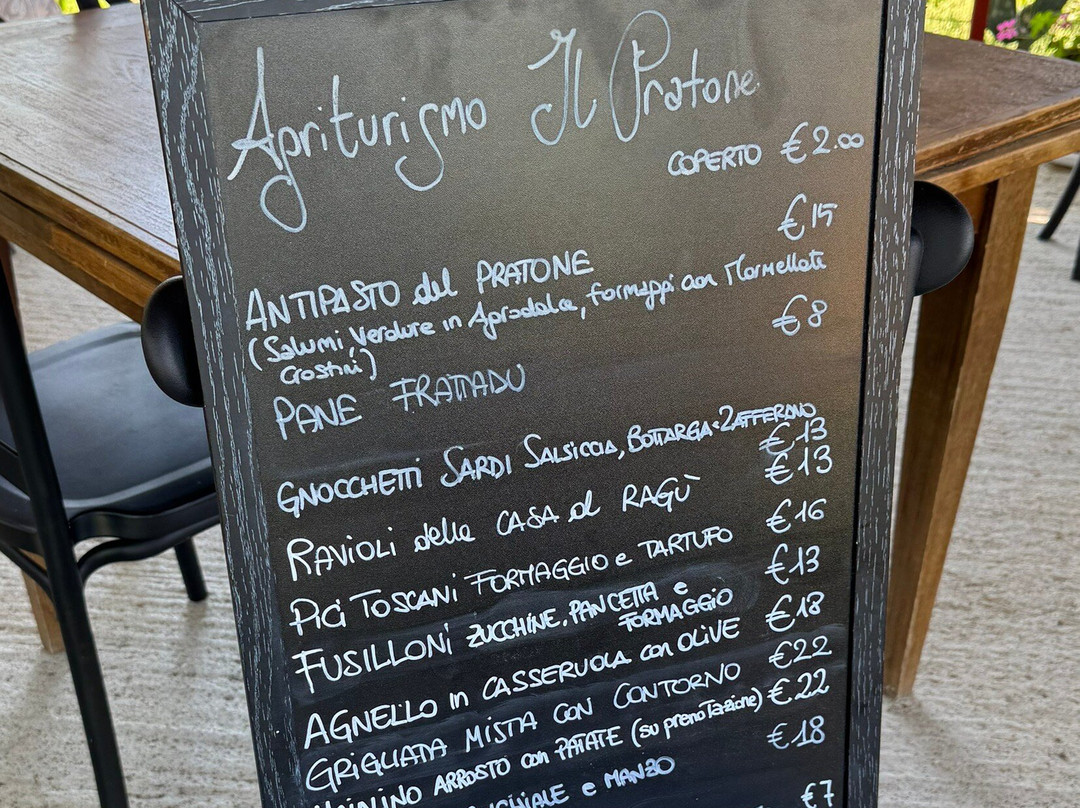 Agriturismo Il Pratone
COPERTO €2.00
€15
ANTIPASTO del PRATONE
(Salumi, Verdure in Agrodolce, formaggi con Marmellate
Crostini)
€8
PANE FRATTADU
GNOCCHETTI SARDI SALSICCIA, BOTTARGA e ZAFFERANO
€13
€13
RAVIOLI della CASA al RAGÙ
€16
PICI TOSCANI FORMAGGIO e TARTUFO
€13
FUSILLONI ZUCCHINE, PANCETTA e
FORMAGGIO
€18
AGNELLO in CASSERUOLA con OLIVE
€22
GRIGLIATA MISTA CON CONTORNO
€22
ARROSTO con PATATE (su prenotazione)
€18
e MANZO
€7